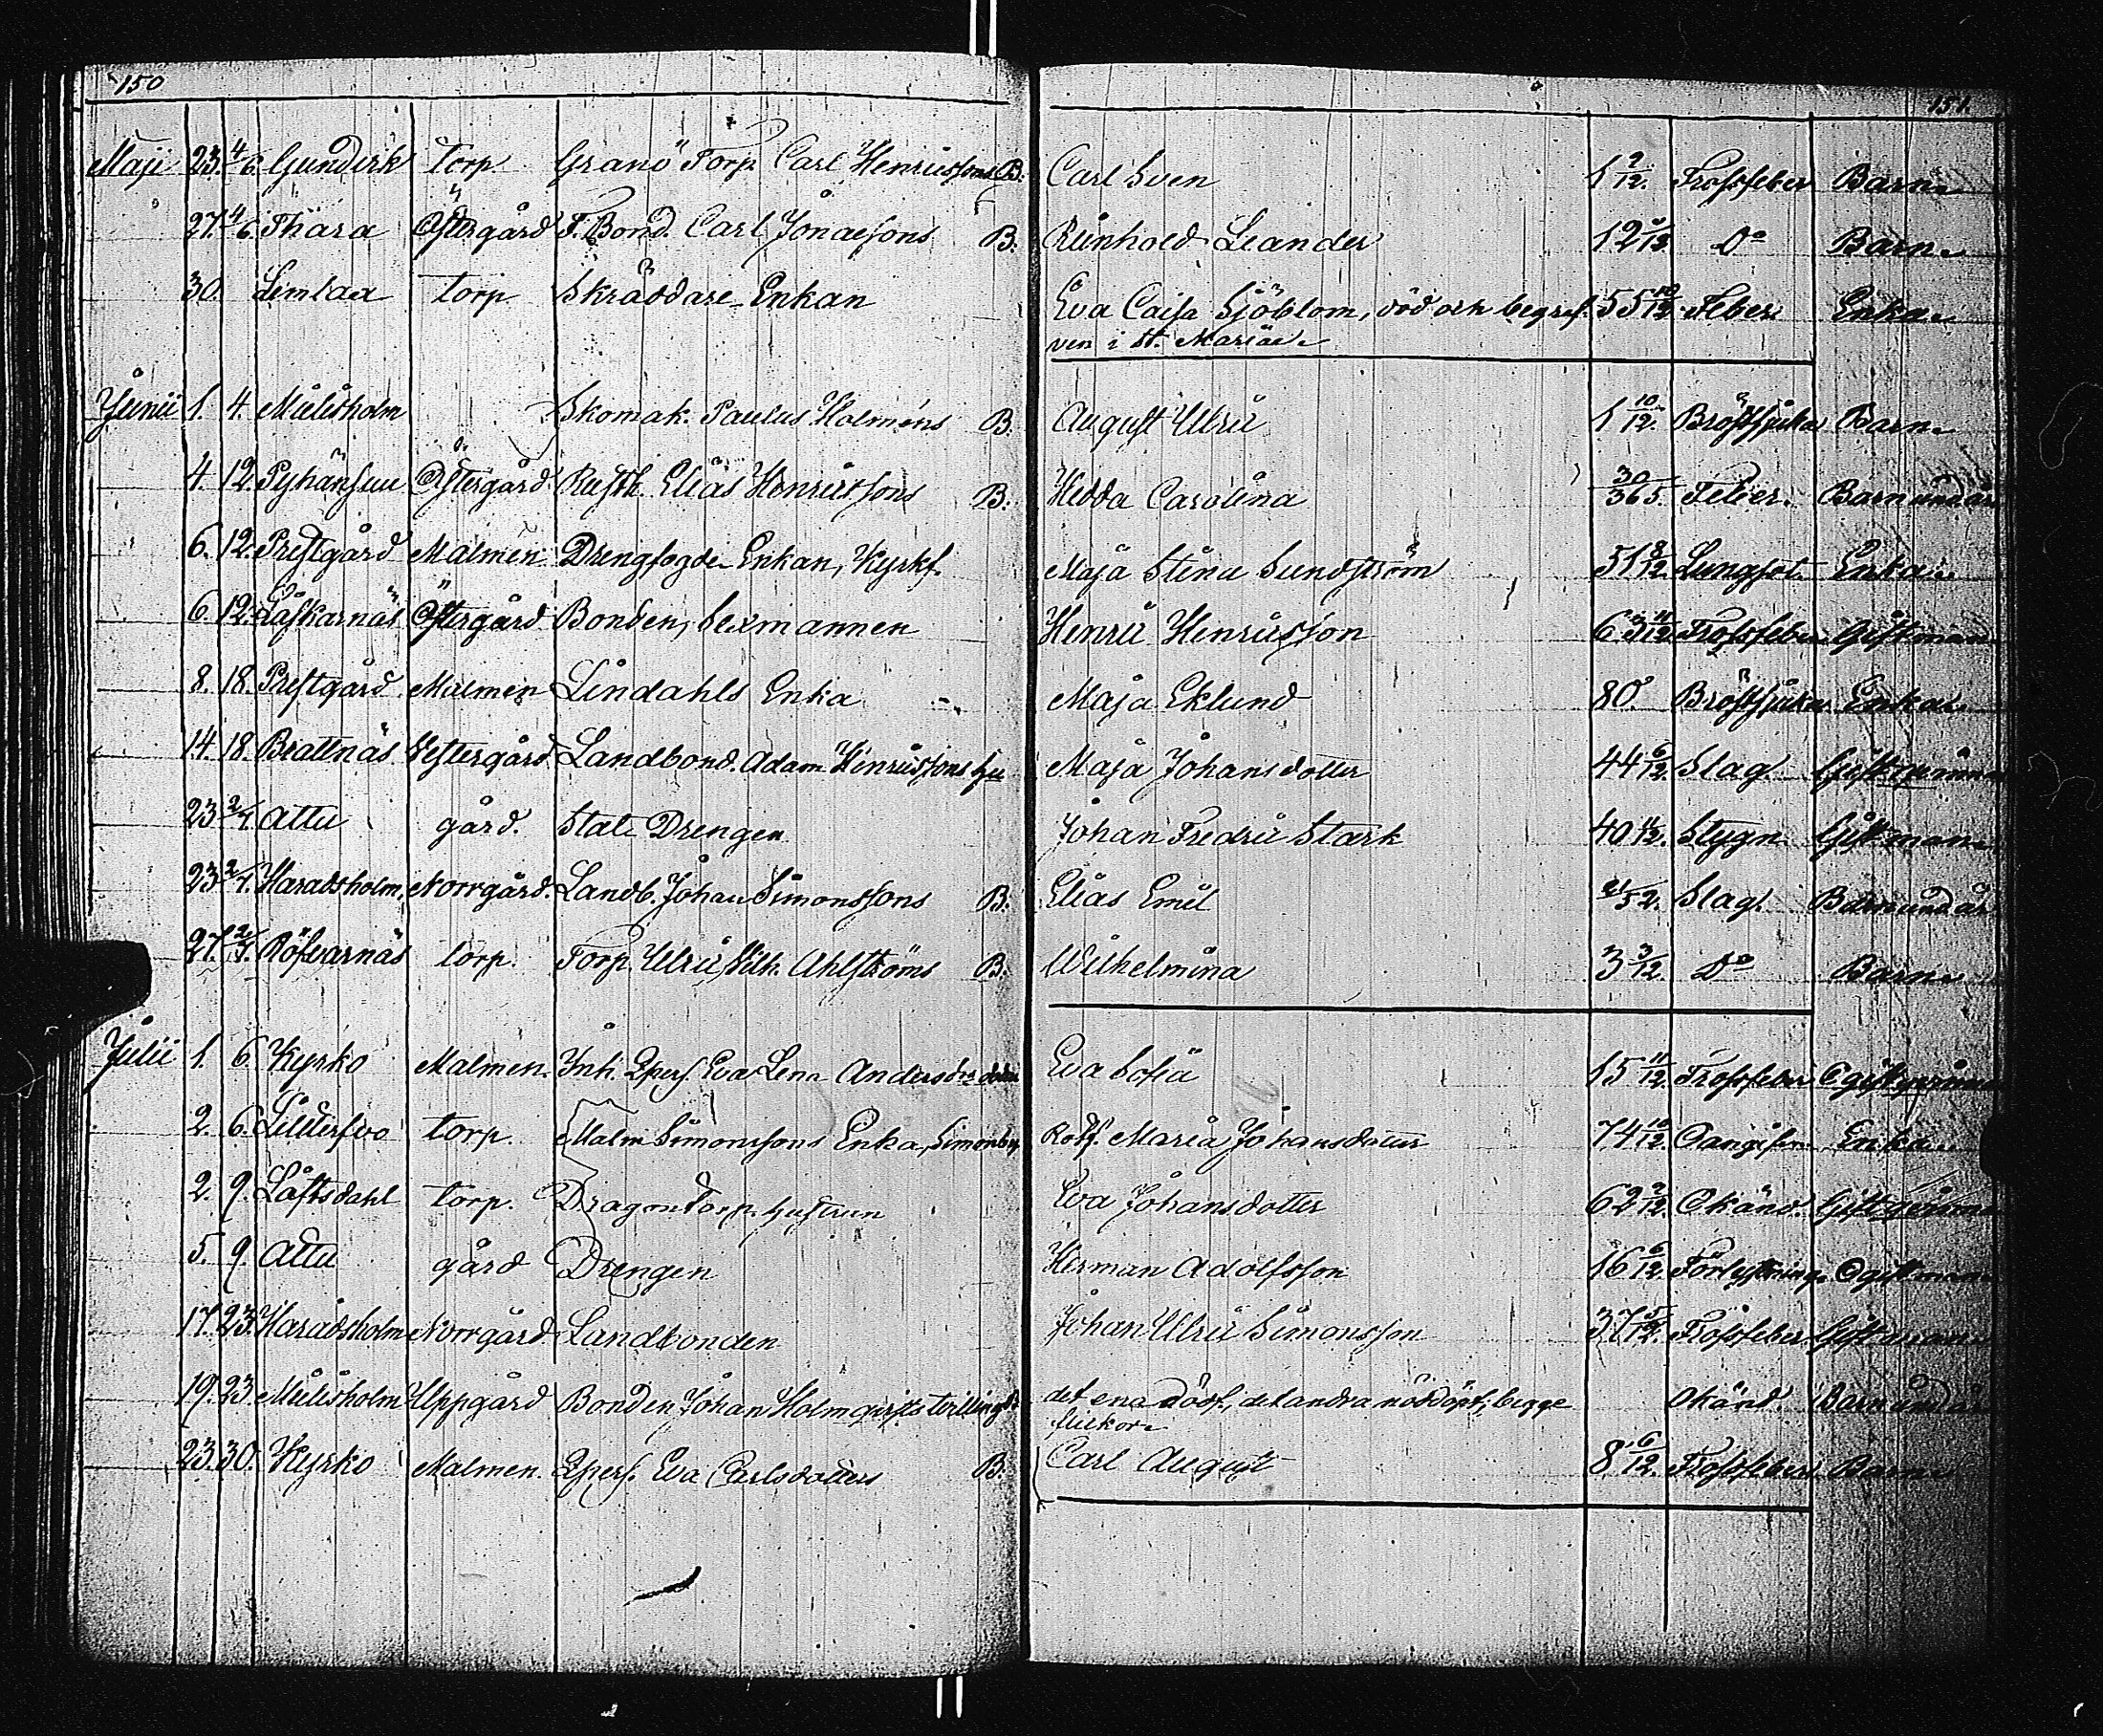 150
151.
Maji 23. 4/6. Gundvik torp. Granö Torp. Carl Henricssons B. Carl Sven 1 2/12. Frossfeber Barn
27. 4/6. Thara Östergård F. Bond. Carl Jonaesons B. Reinhold Leander 12 /12. Do Barn
30. Lemlax torp. Skräddare Enkan Eva Caisa Sjöblom, död och begraf- 55 10/12. Feber Enka
ven i St. Mariæ
Junii 1. 4. Mielisholm Skomak. Paulus Holméns B. August Ulric 1 10/12. Bröstsjuka Barn
4. 12. Pyhänsuu Östergård. Rusth. Elias Henricssons B. Hedda Carolina 30/365. Feber. Barn und. år
6. 12. Prestgård Malmen Drengfogde Enkan, Kyrkf. Maja Stina Sundström 51 8/12. Lungsot. Enka
6. 12. Låskarnäs Östergård Bonden, Sexmannen Henric Henricsson 63 11/12. Frossfeber Gift man
8. 18. Prestgård. Malmen Lindahls Enka Maja Eklund 80. Bröstsjuka Enka
14. 18. Brattnäs. Vestergård. Landbond. Adam Henricssons hu Maja Johansdotter 44 6/12. Slag Gift qvinna
23 2/7. Attu gård. Stat. Drengen Johan Fredric Stark 40 11/12. Stygn Gift man
23 2/7. Haradsholm. Norrgård. Landb. Johan Simonssons B. Elias Emil 21/52. Slag. Barn und. år
27. 2/7. Röfvarnäs torp. Torp. Ulric Vilh. Ahlströms B. Wilhelmina 3 3/12. Do Barn
Julii 1. 6. Kyrko Malmen. Inh. Qpers. Eva Lena Andersdr dotter Eva Sofia 15 11/12. Frossfeber Ogift qvinna
2. 6. torp. Malm Simonssons Enka, Simonby Rotf. Maria Johansdotter 74 10/12. Enka
2. 9. Låftsdahl torp. Dragon torp. hustrun Eva Johansdotter 62 2/12. Okänd. Gift qvinna
5. 9. Attu gård Drengen Herman Adolfsson 16 6/12. Förlyftning Ogift man
17. 23. Haradsholm Norrgård Landbonden Johan Ulric Simonsson 37 5/12. Frossfeber Gift man
19. 23. Mielisholm Uppgård Bonden Johan Holmqvists tvilling det ena dödf., det andra nöddöpt, begge Okänd. Barn und. år
flickor
23. 30. Kyrko Malmen. Qpers. Eva Carlsdotters B. Carl August 8 6/12. Frossfeber Barn